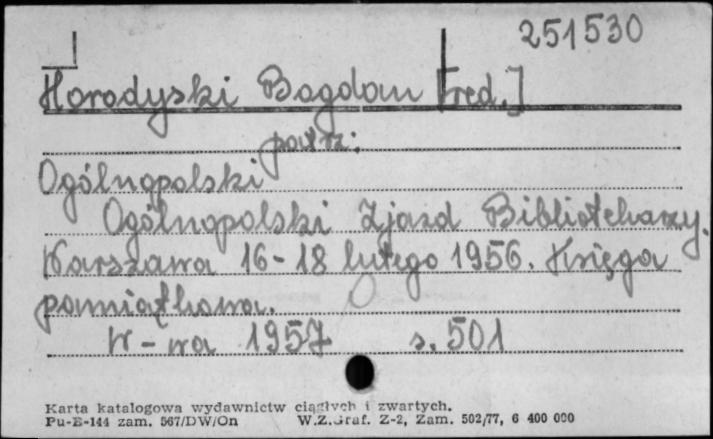 251530
Horodyski Bogdan [red.]
patrz:
Ogólnopolski
Ogólnopolski Zjazd Bibliotekarzy.
Warszawa 16-18 lutego 1956. Księga
pamiątkowa.
W-wa 1957 s. 501
Karta katalogowa wydawnictw ciągłych i zwartych.
Pu-E-144 zam. 567/DW/On W.Z.Graf. Z-2, Zam. 502/77, 6 400 000